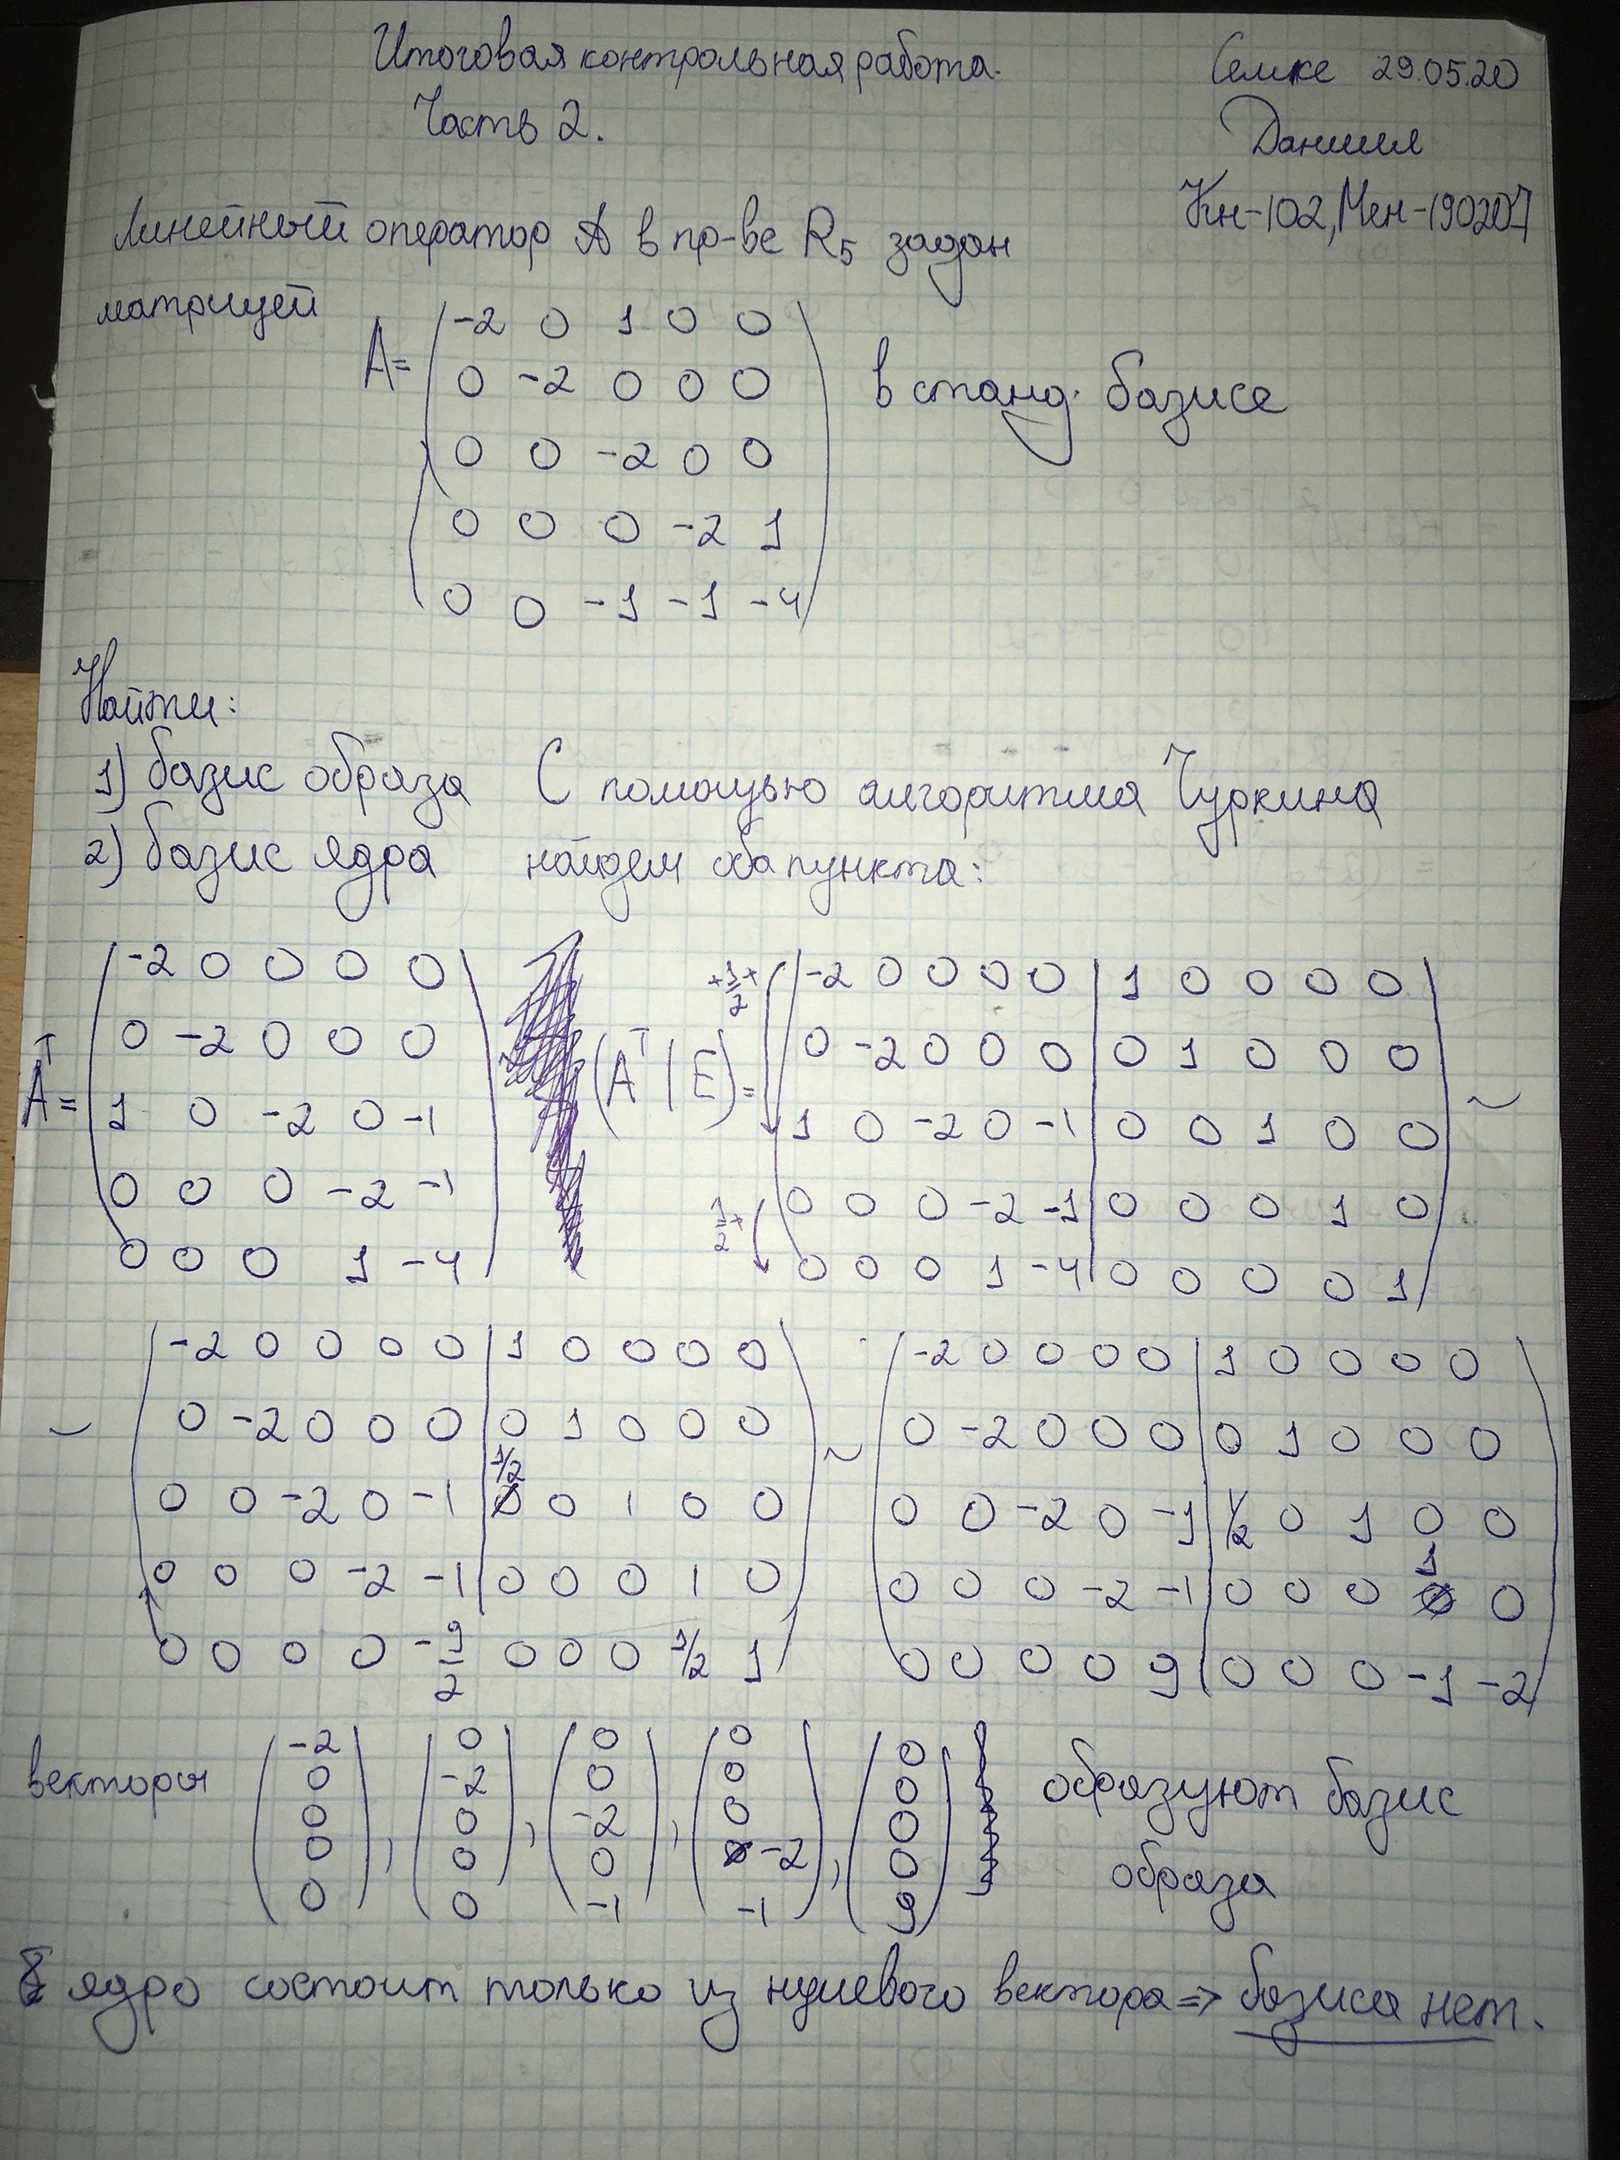 Итоговая контрольная работа.
Часть 2.
Семке 29.05.20
Даниил
Кн-102, Мен-190207
Линейный оператор A в пр-ве R₅ задан
матрицей
A=
-2 0 1 0 0
0 -2 0 0 0
0 0 -2 0 0
0 0 0 -2 1
0 0 -1 -1 -4
в станд. базисе
Найти:
1) базис образа
2) базис ядра
С помощью алгоритма Чуркина
найдем оба пункта:
Aᵀ=
-2 0 0 0 0
0 -2 0 0 0
1 0 -2 0 -1
0 0 0 -2 -1
0 0 0 1 -4
(Aᵀ | E) =
-2 0 0 0 0 | 1 0 0 0 0
0 -2 0 0 0 | 0 1 0 0 0
1 0 -2 0 -1 | 0 0 1 0 0 ~
0 0 0 -2 -1 | 0 0 0 1 0
0 0 0 1 -4 | 0 0 0 0 1
-2 0 0 0 0 | 1 0 0 0 0
~ 0 -2 0 0 0 | 0 1 0 0 0 ~
0 0 -2 0 -1 | 1/2 0 1 0 0
0 0 0 -2 -1 | 0 0 0 1 0
0 0 0 0 -9/2 0 0 0 1/2 1
-2 0 0 0 0 | 1 0 0 0 0
0 -2 0 0 0 | 0 1 0 0 0
0 0 -2 0 -1 | 1/2 0 1 0 0
0 0 0 -2 -1 | 0 0 0 1 0
0 0 0 0 9 | 0 0 0 -1 -2
векторы
-2 0 0 0 0
0 -2 0 0 0
0 0 -2 0 0
0 0 0 -2 0
0 0 -1 -1 9
образуют базис
образа
ядро состоит только из нулевого вектора => базиса нет.